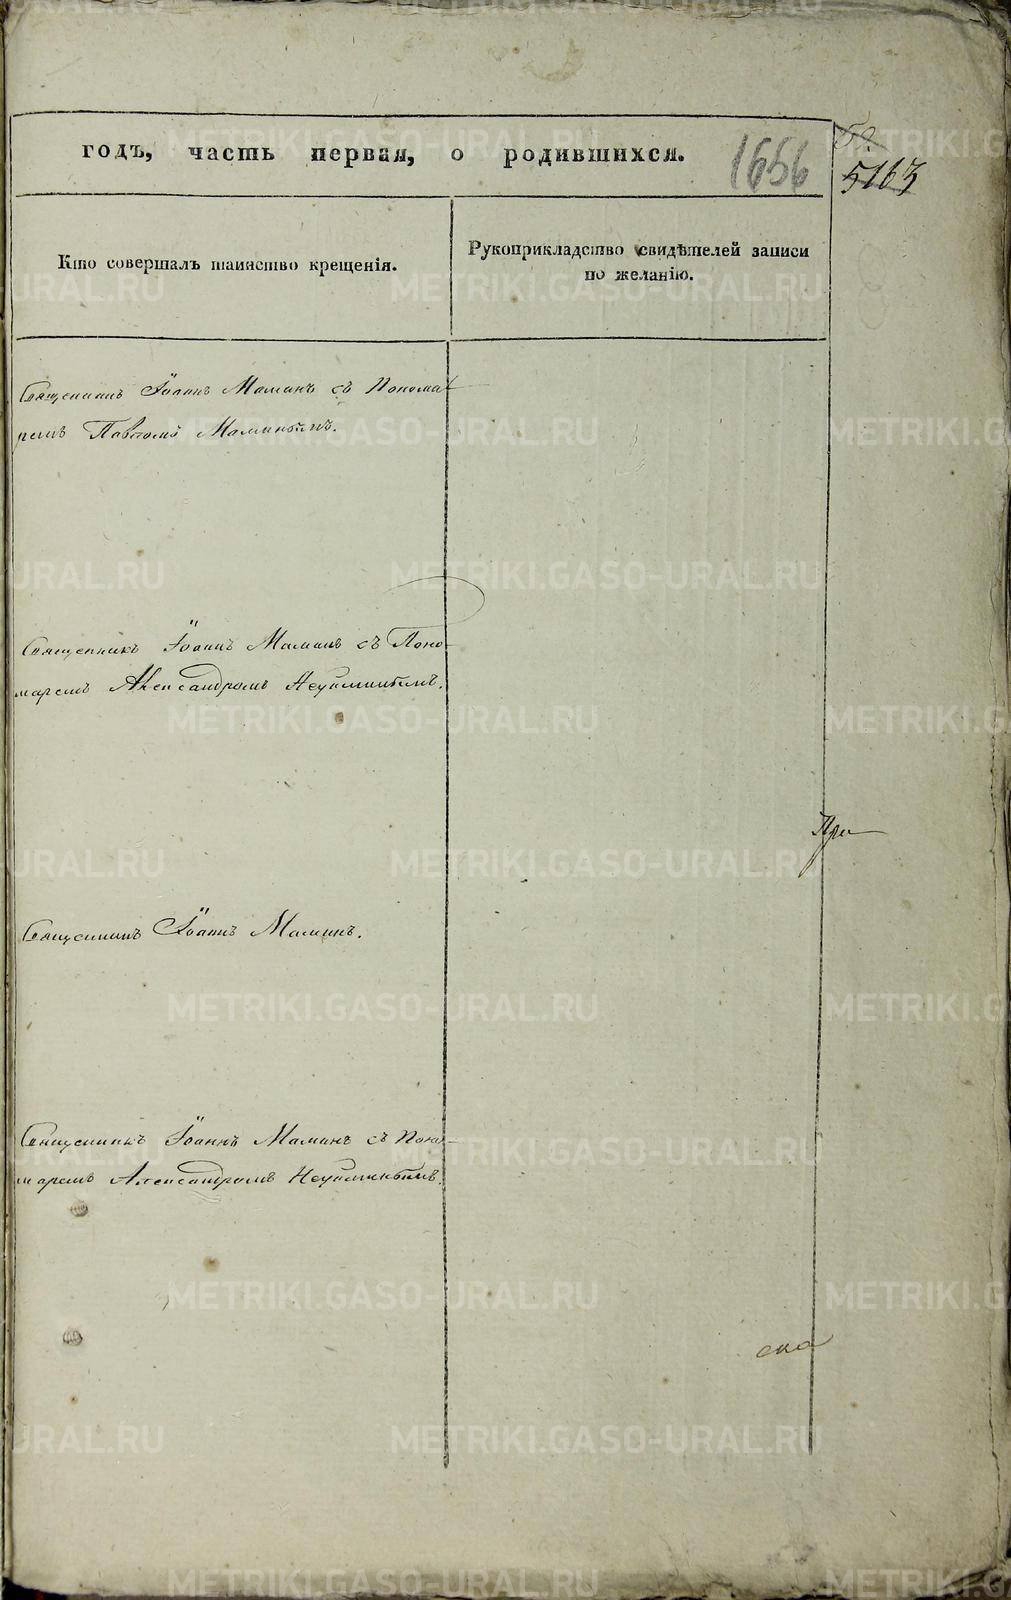 годъ, часть первая, о родившихся.
1656
5163
Кто совершалъ таинство крещенія.
Рукоприкладство свидѣтелей записи
по желанію.
Священникъ Іоаннъ Маминъ съ Понома-
ремъ Павломъ Маминымъ.
Священникъ Іоаннъ Маминъ съ Поно-
маремъ Александромъ Неуйминымъ.
При
Священникъ Іоаннъ Маминъ.
Священникъ Іоаннъ Маминъ съ Поно-
маремъ Александромъ Неуйминымъ.
ска
METRIKI.GASO-URAL.RU